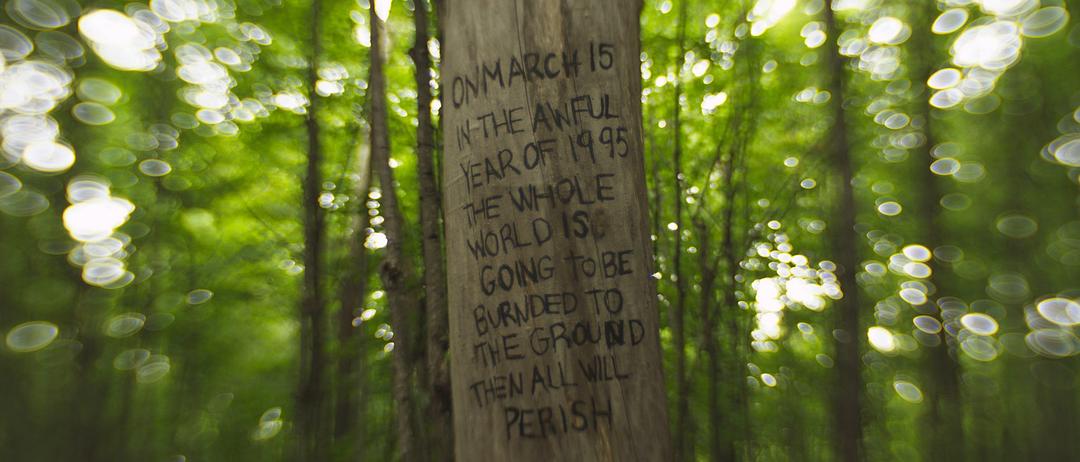 ON MARCH 15
IN THE AWFUL
YEAR OF 1995
THE WHOLE
WORLD IS
GOING TO BE
BURNDED TO
THE GROUND
THEN ALL WILL
PERISH